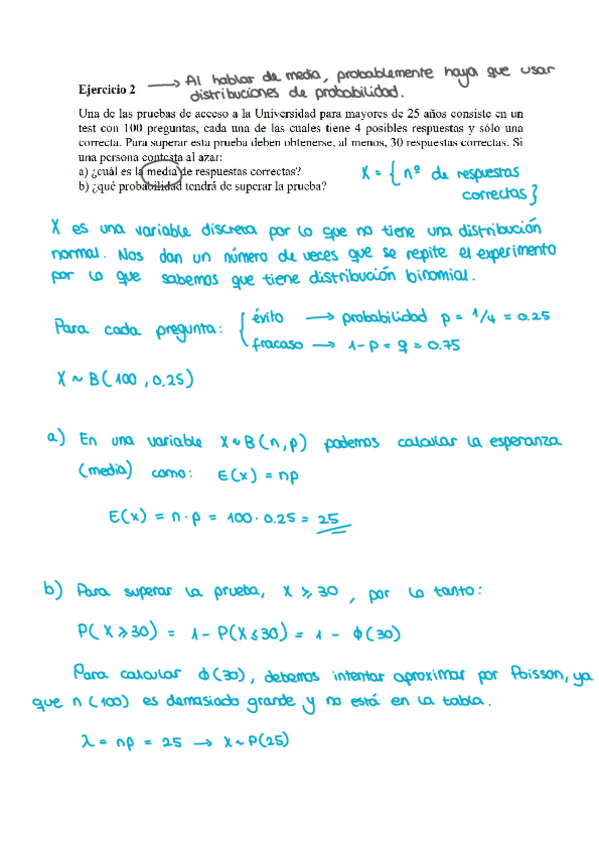 Ejercicio 2 → Al hablar de media, probablemente haya que usar
distribuciones de probabilidad.
Una de las pruebas de acceso a la Universidad para mayores de 25 años consiste en un
test con 100 preguntas, cada una de las cuales tiene 4 posibles respuestas y sólo una
correcta. Para superar esta prueba deben obtenerse, al menos, 30 respuestas correctas. Si
una persona contesta al azar:
a) ¿cuál es la media de respuestas correctas?
b) ¿qué probabilidad tendrá de superar la prueba?
X = { nº de respuestas
correctas }
X es una variable discreta por lo que no tiene una distribución
normal. Nos dan un número de veces que se repite el experimento
por lo que sabemos que tiene distribución binomial.
Para cada pregunta: { éxito → probabilidad p = 1/4 = 0.25
fracaso → 1-p = q = 0.75
X ~ B(100, 0.25)
a) En una variable X~B(n,p) podemos calcular la esperanza
(media) como: E(x) = np
E(x) = n·p = 100·0.25 = 25
b) Para superar la prueba, X ⩾ 30, por lo tanto:
P(X⩾30) = 1 - P(X⩽30) = 1 - ϕ(30)
Para calcular ϕ(30), debemos intentar aproximar por Poisson, ya
que n (100) es demasiado grande y no está en la tabla.
λ = np = 25 → X~P(25)